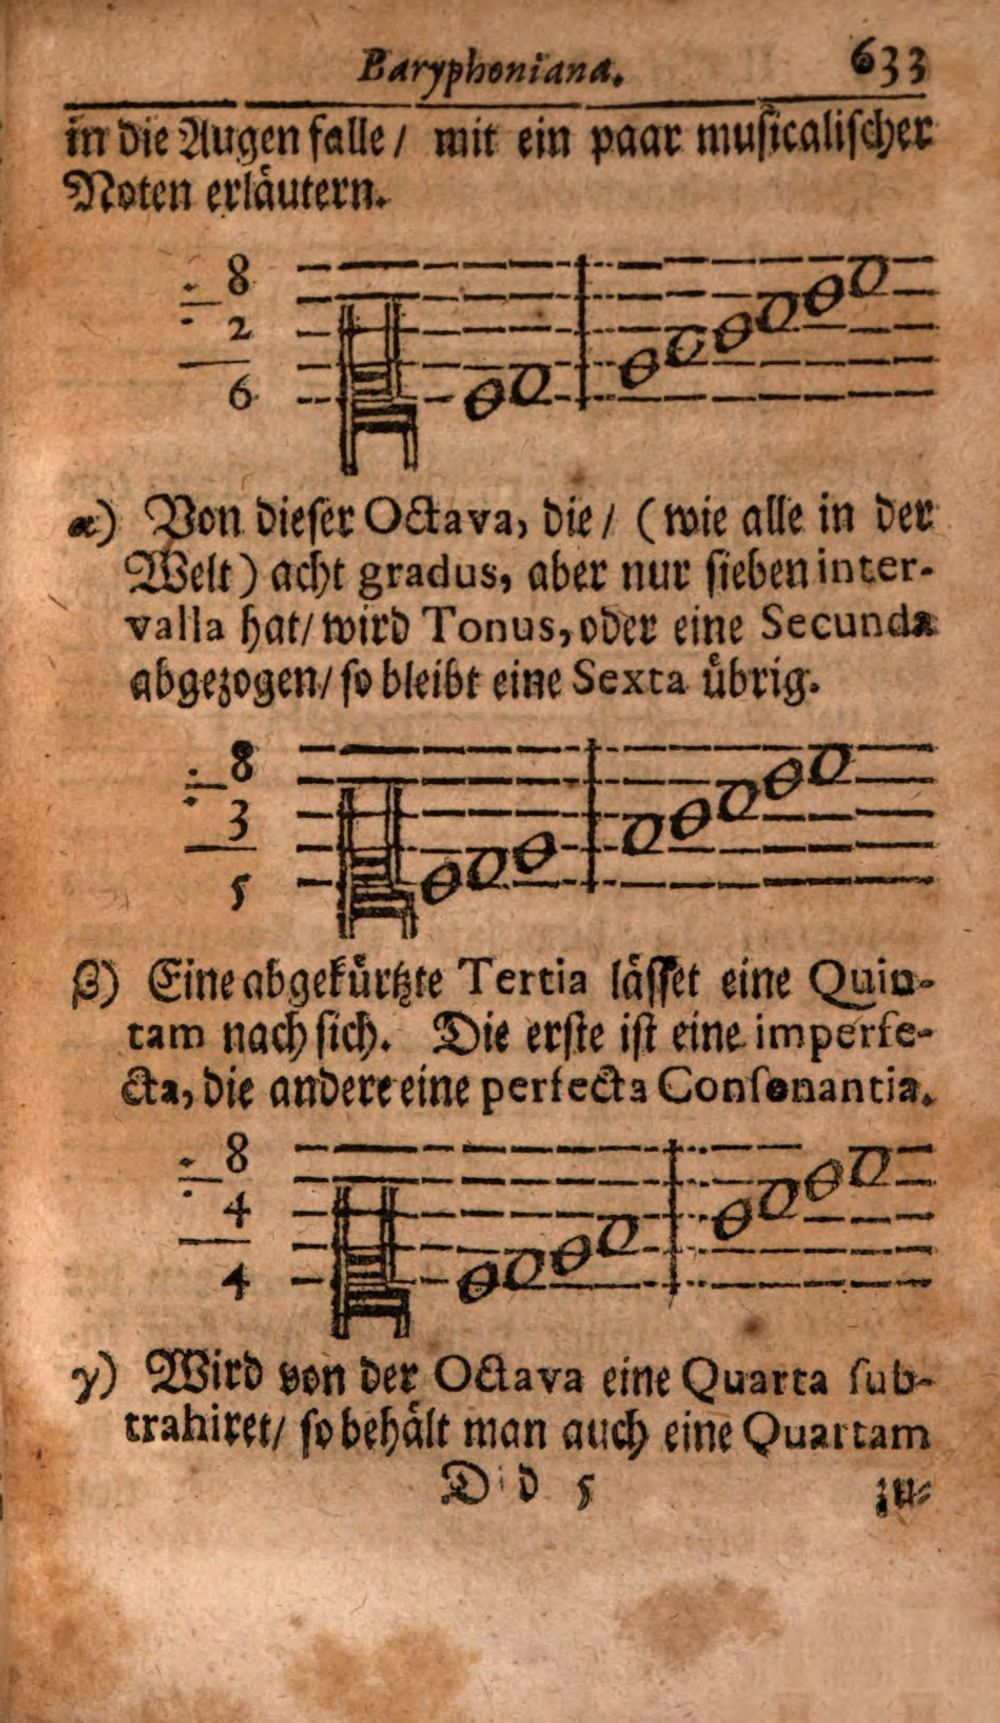 Baryphoniana. 633
in die Augen falle / mit ein paar muſicaliſcher
Noten erlaͤutern.
8
÷ 2
6
α) Von dieſer Octava, die / (wie alle in der
Welt) acht gradus, aber nur ſieben inter-
valla hat / wird Tonus, oder eine Secunda
abgezogen / ſo bleibt eine Sexta uͤbrig.
8
÷ 3
5
β) Eine abgekuͤrtzte Tertia laͤſſet eine Quin-
tam nach ſich. Die erſte iſt eine imperfe-
cta, die andere eine perfecta Conſonantia.
8
÷ 4
4
γ) Wird von der Octava eine Quarta ſub-
trahiret / ſo behaͤlt man auch eine Quartam
D d 5 zu-